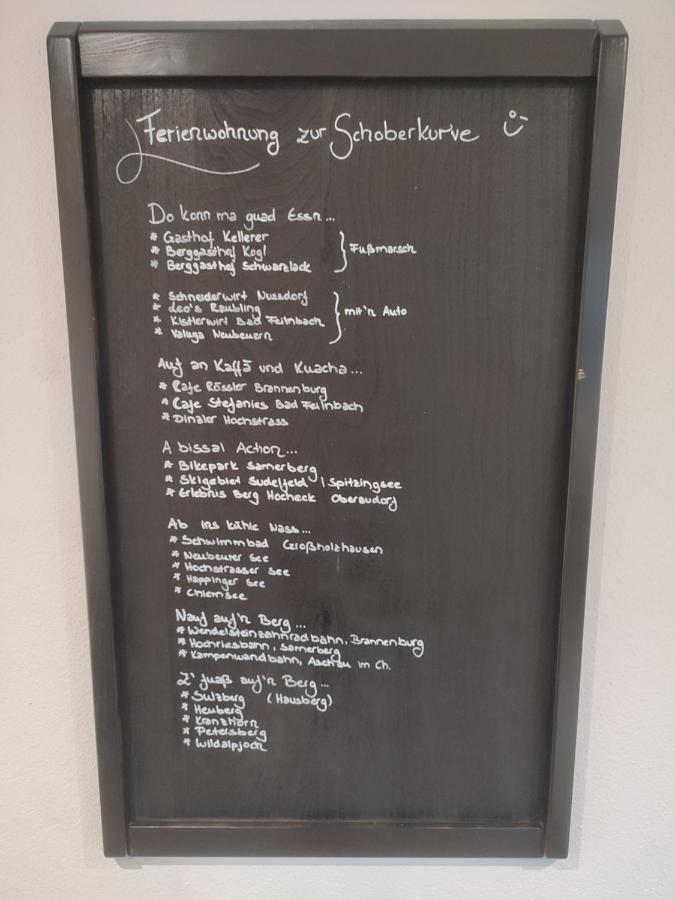 Ferienwohnung zur Schoberkurve
Do konn ma guad Essn...
* Gasthof Kellerer
* Berggasthof Kogl
* Berggasthof Schwarzlack
Fußmarsch
* Schneiderwirt Nussdorf
* Leo's Raubling
* Kistlerwirt Bad Feilnbach
* Valuga Neubeuern
mit'n Auto
Auf an Kaffä und Kuacha...
* Cafe Rössler Brannenburg
* Cafe Stefanies Bad Feilnbach
* Dinaler Hochstrass
A bissal Action...
* Bikepark Samerberg
* Skigebiet Sudelfeld | Spitzingsee
* Erlebnis Berg Hocheck Oberaudorf
Ab ins kühle Nass...
* Schwimmbad Großholzhausen
* Neubeurer See
* Hochstrasser See
* Happinger See
* Chiemsee
Nauf auf'n Berg...
* Wendelsteinzahnradbahn, Brannenburg
* Hochriesbahn, Samerberg
* Kampenwandbahn, Aschau im Ch.
Z' fuaß auf'n Berg...
* Sulzberg (Hausberg)
* Heuberg
* Kranzhorn
* Petersberg
* Wildalpjoch